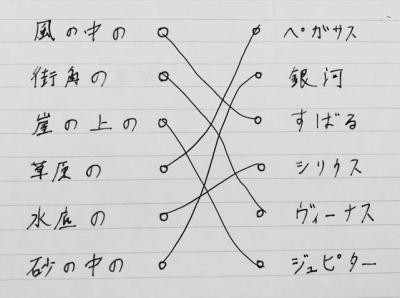 風の中の ペガサス
街角の 銀河
崖の上の すばる
草原の シリウス
水底の ヴィーナス
砂の中の ジュピター